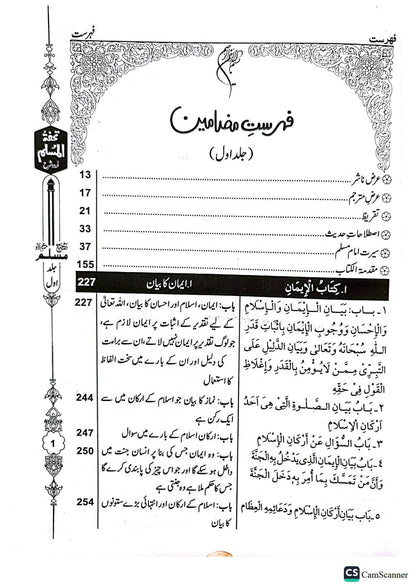 فهرست
فهرست
بسم اللہ الرحمن الرحیم
فہرست مضامین
(جلد اول)
عرض ناشر 13
عرض مترجم 17
تقریظ 21
اصطلاحات حدیث 33
سیرت امام مسلم 37
مقدمة الکتاب 155
تحفة
المسلم
مسلم
جلد
اول
1
١. كِتَابُ الْإِيمَانِ
١ - بَاب: بَيَانِ الْإِيمَانِ وَالْإِسْلَامِ
وَالْإِحْسَانِ وَوُجُوبِ الْإِيمَانِ بِإِثْبَاتِ قَدَرِ
اللهِ سُبْحَانَهُ وَتَعَالٰى وَبَيَانِ الدَّلِيلِ عَلَى
التَّبَرِّى مِمَّنْ لَا يُؤْمِنُ بِالْقَدَرِ وَإِغْلَاظِ
الْقَوْلِ فِى حَقِّهِ
٢ - بَابُ بَيَانِ الصَّلَوةِ الَّتِى هِىَ اَحَدُ
اَرْكَانِ الْإِسْلَامِ
٣ - بَاب: السُّؤَالِ عَنْ أَرْكَانِ الْإِسْلَامِ
٤ - بَابُ بَيَانِ الْإِيمَانِ الَّذِى يُدْخَلُ بِهِ الْجَنَّةَ
وَأَنَّ مَنْ تَمَسَّكَ بِمَا أُمِرَ بِهِ دَخَلَ الْجَنَّةَ
٥ - بَاب بَيَانِ أَرْكَانِ الْإِسْلَامِ وَدَعَائِمِهِ الْعِظَامِ
ا. ایمان کا بیان 227
باب: ایمان، اسلام اور احسان کا بیان، اللہ تعالیٰ 227
کے لیے تقدیر کے اثبات پر ایمان لازم ہے،
جو لوگ تقدیر پر ایمان نہیں لاتے، ان سے براءت
کی دلیل اور ان کے بارے میں سخت الفاظ
کا استعمال
باب: نماز کا بیان جو اسلام کے ارکان میں سے 244
ایک رکن ہے
باب: ارکان اسلام کے بارے میں سوال 247
باب: وہ ایمان جس کی بنا پر انسان جنت میں 250
داخل ہو سکے گا اور جو اس چیز کی پابندی کرے گا
جس کا حکم ملا ہے وہ جنتی ہے
باب: اسلام کے ارکان اور انتہائی بڑے ستونوں 254
کا بیان
CS CamScanner